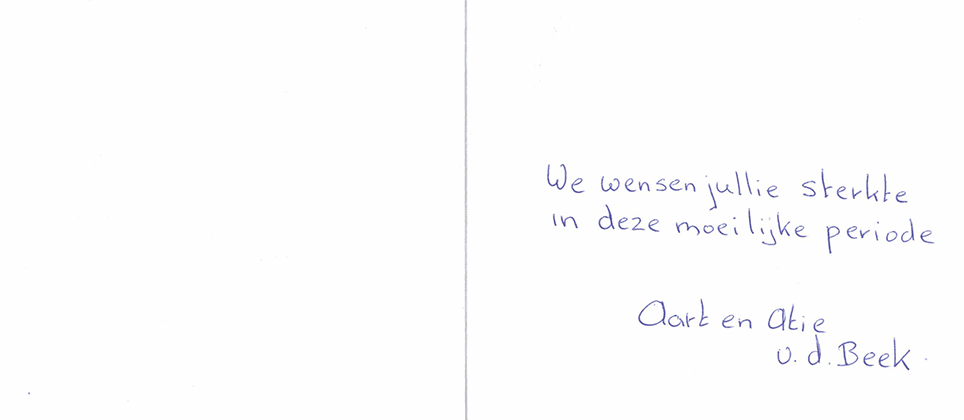 We wensen jullie sterkte
in deze moeilijke periode
Aart en Atie
v.d. Beek